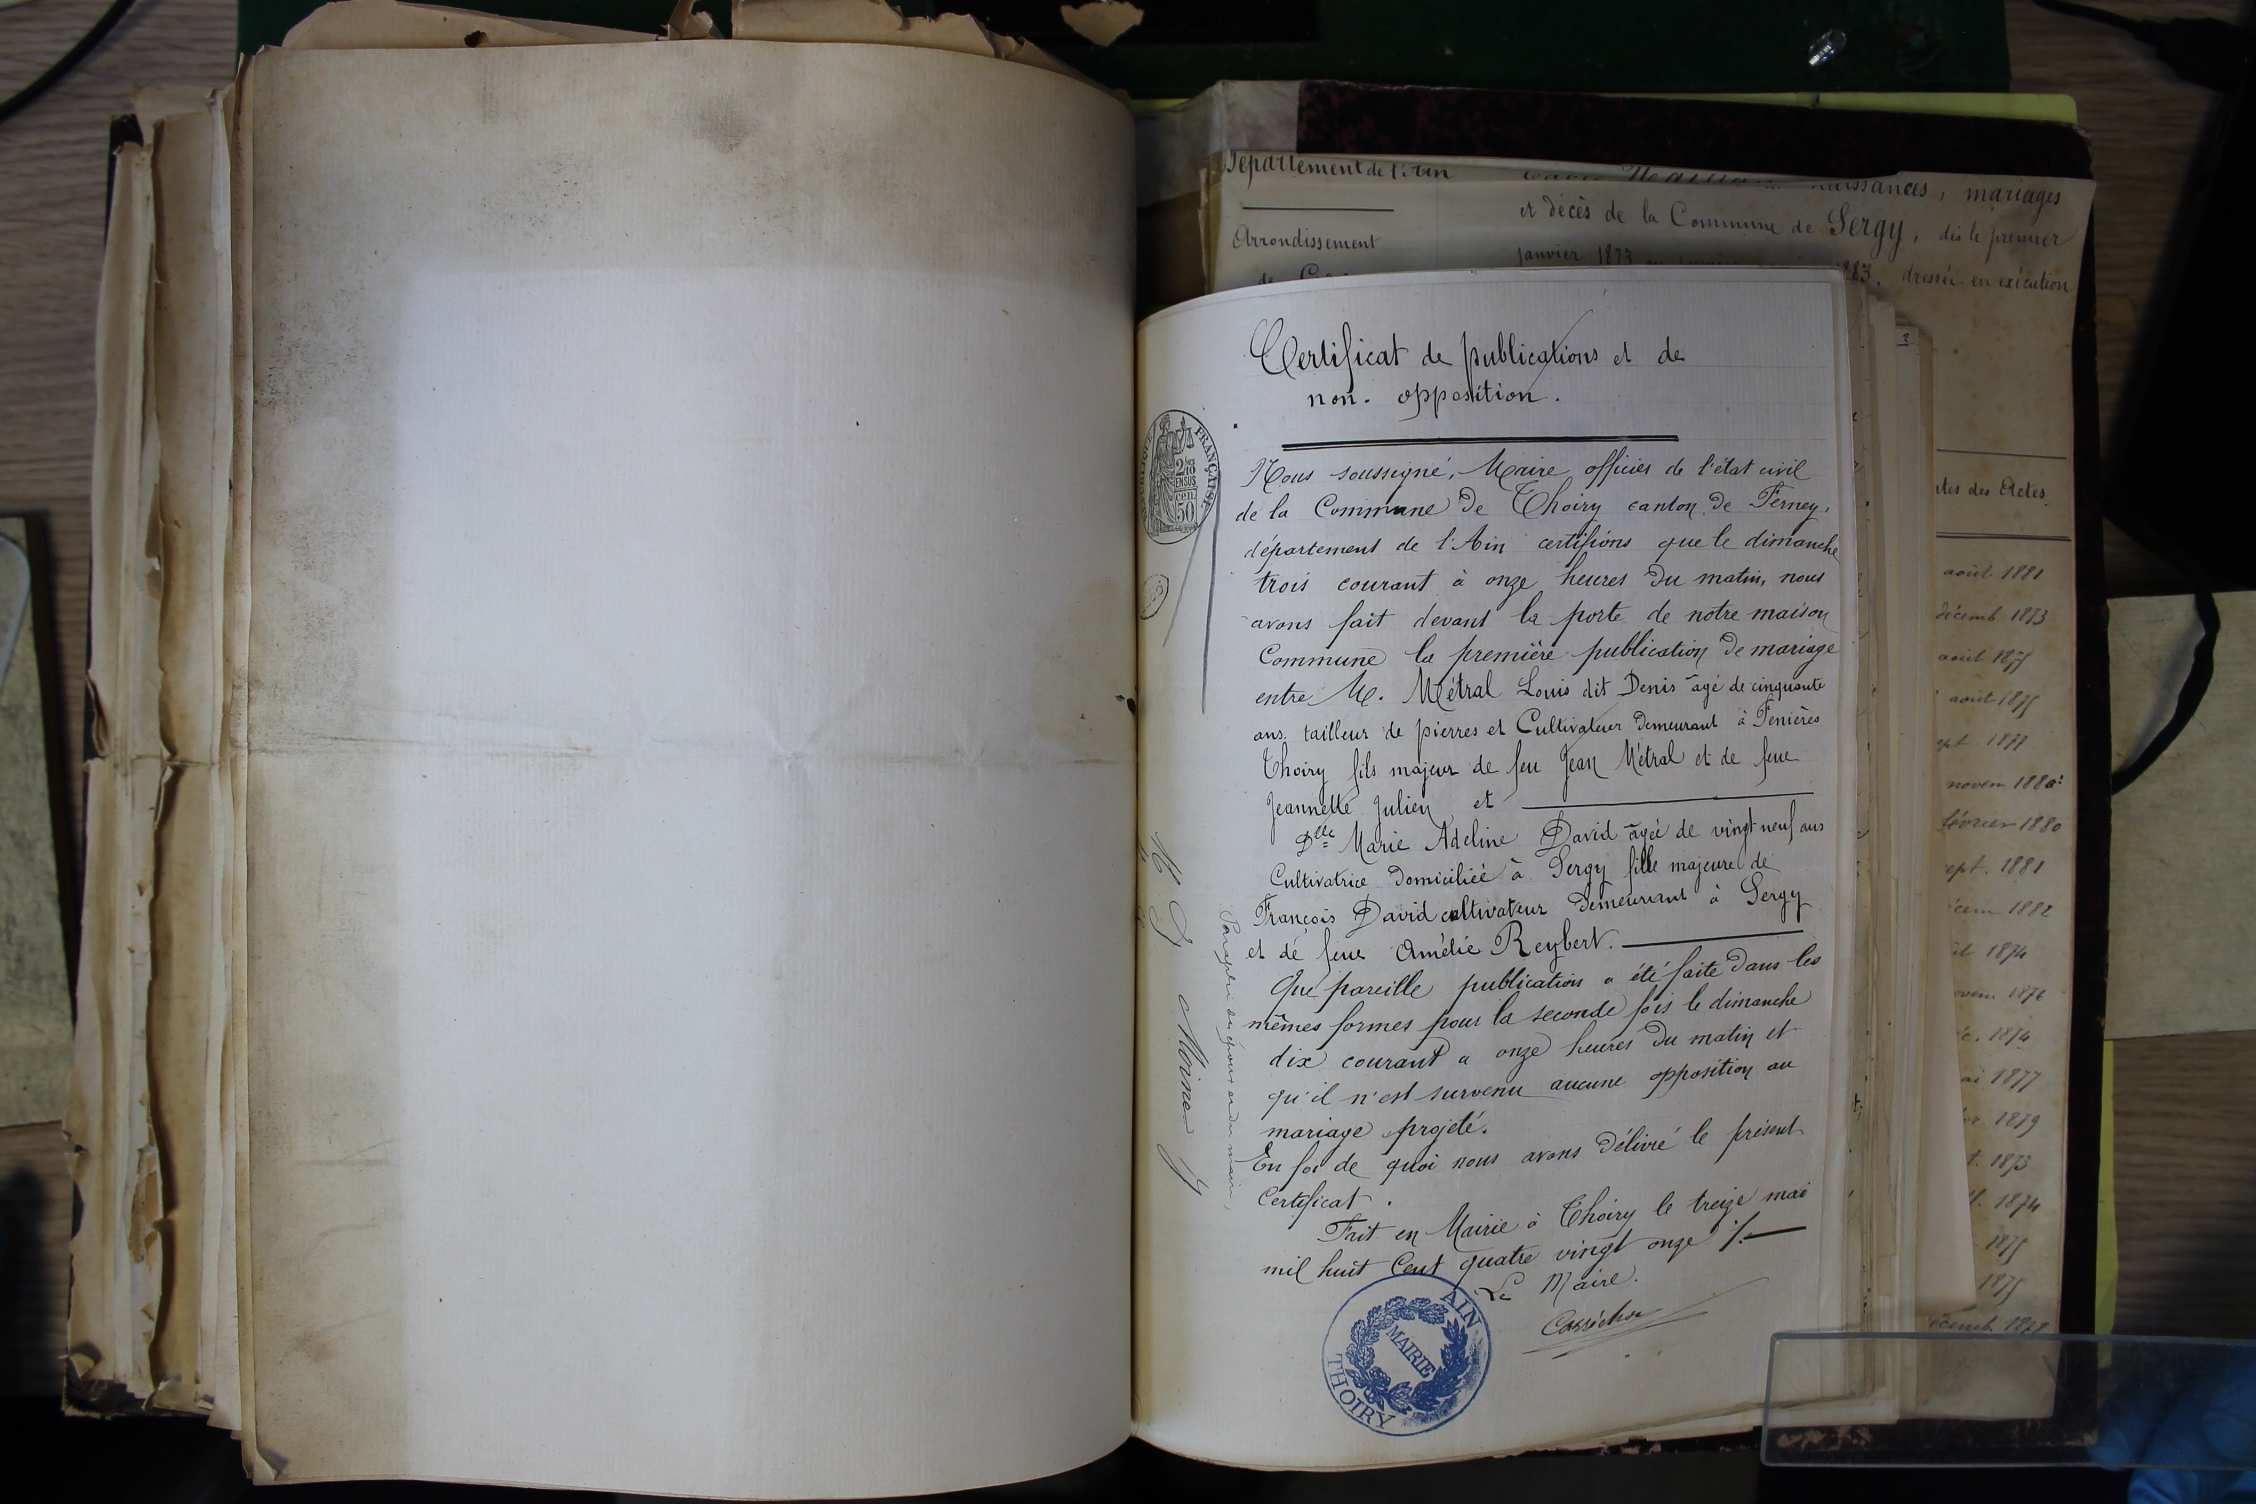 Département de l'Ain
naissances, mariages
et décès de la Commune de Sergy, dès le premier
Arrondissement
janvier 1873
dressée en exécution
Certificat de publications et de
non. opposition.
FRANÇAISE
2/10
EN SUS
50
Nous soussigné, Maire officier de l'état civil
de la Commune de Thoiry canton de Ferney,
département de l'Ain certifions que le dimanche
trois courant à onze heures du matin, nous
avons fait devant la porte de notre maison
Commune la première publication de mariage
entre M. Métral Louis dit Denis agé de cinquante
ans, tailleur de pierres et Cultivateur demeurant à Fenières
Thoiry fils majeur de feu Jean Métral et de feue
Jeannette Julien et
Dlle Marie Adeline David agée de vingt neuf ans
Cultivatrice domiciliée à Sergy fille majeure de
François David cultivateur demeurant à Sergy
et de feue Amélie Reybert.
Que pareille publication a été faite dans les
mêmes formes pour la seconde fois le dimanche
dix courant a onze heures du matin et
qu'il n'est survenu aucune opposition au
mariage projeté.
En foi de quoi nous avons délivré le présent
Certificat.
Fait en Mairie à Thoiry le treize mai
mil huit Cent quatre vingt onze ./.
Le Maire.
AIN
MAIRIE
THOIRY
des Actes
août 1881
décemb 1873
août 1875
août 1875
1877
novem 1880
février 1880
sept. 1881
1882
1874
1876
1874
1877
1879
1873
1874
1875
1875